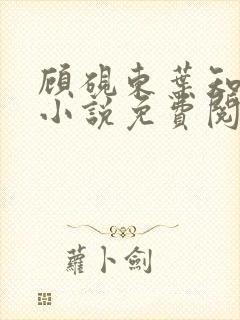 顧硯東葉知
小說免費閱
蘿卜劍